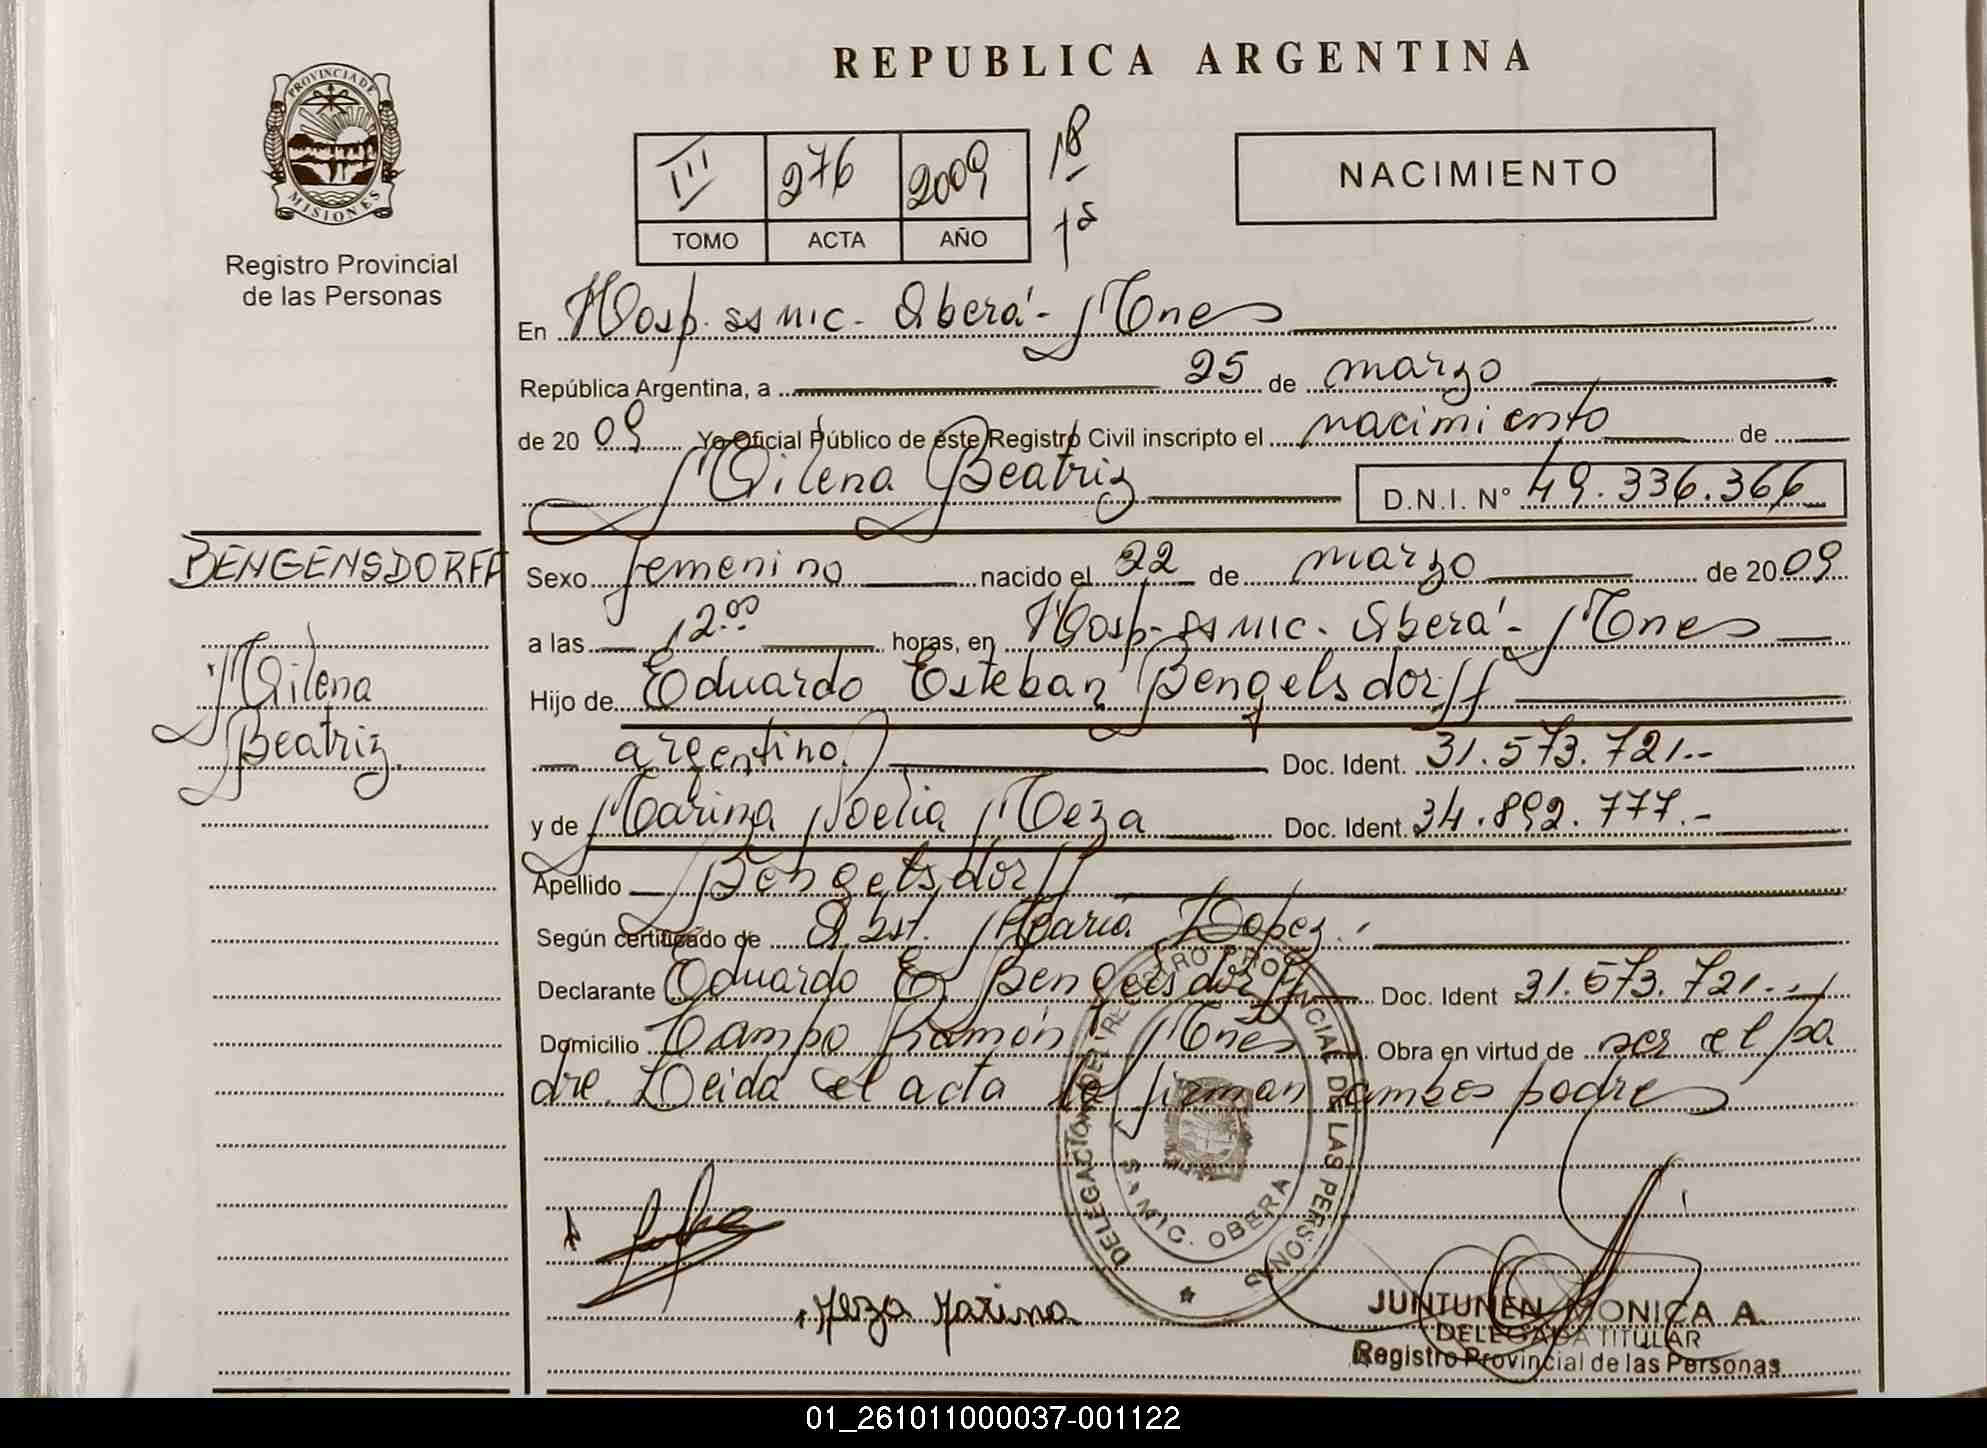 REPUBLICA ARGENTINA
PROVINCIA DE
MISIONES
Registro Provincial
de las Personas
III 276 2009 18
TOMO ACTA AÑO
NACIMIENTO
En Hosp. ss mic. Oberá - Mnes
República Argentina, a 25 de marzo
de 20 09 Yo Oficial Público de éste Registro Civil inscripto el nacimiento de
Milena Beatriz D.N.I. N° 49.336.366
BENGENSDORFF
Milena
Beatriz.
Sexo femenino nacido el 22 de marzo de 20 09
a las 12.00 horas, en Hosp. ss mic. Oberá - Mnes
Hijo de Eduardo Esteban Bengelsdorff
argentino Doc. Ident. 31.573.721.-
y de Marina Noelia Meza Doc. Ident. 34.892.777.-
Apellido Bengelsdorff
Según certificado de Obst. María Lopez.
Declarante Eduardo E. Bengelsdorff Doc. Ident 31.573.721.-
Domicilio Campo Ramón Mnes Obra en virtud de ser el pa
dre. Leida el acta la firman ambos padres
DELEGACION DEL REGISTRO PROVINCIAL DE LAS PERSONAS
SAMIC. OBERA
Meza Marina
JUNTUNEN MONICA A.
DELEGADA TITULAR
Registro Provincial de las Personas
01_261011000037-001122